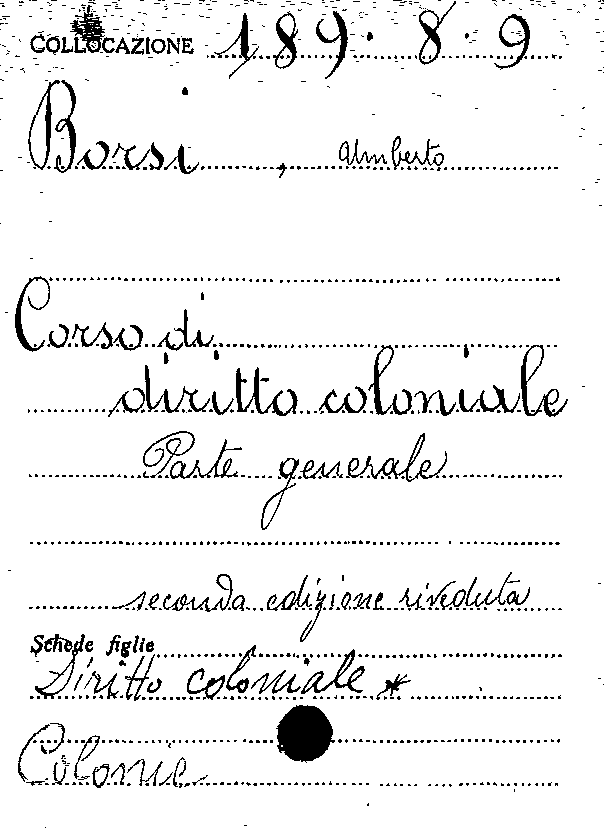 COLLOCAZIONE 189.8.9
Borsi, Umberto
Corso di
diritto coloniale
Parte generale
seconda edizione riveduta
Schede figlie
Diritto coloniale *
Colonie